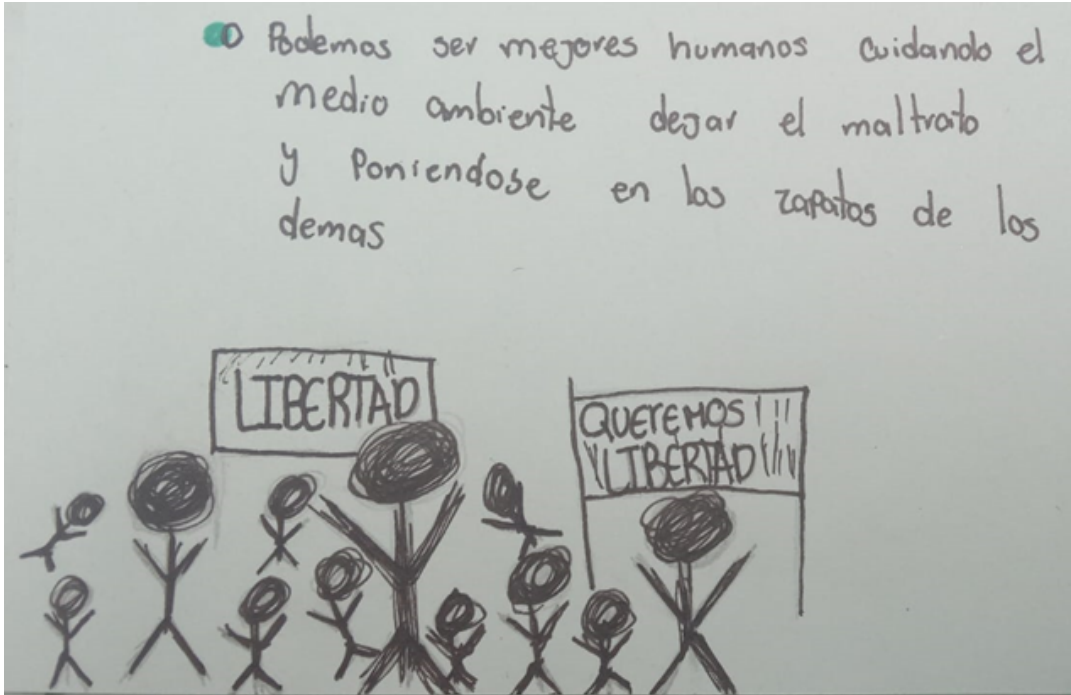 Podemos ser mejores humanos cuidando el
medio ambiente dejar el maltrato
y Poniendose en los zapatos de los
demas
LIBERTAD
QUEREMOS
LIBERTAD